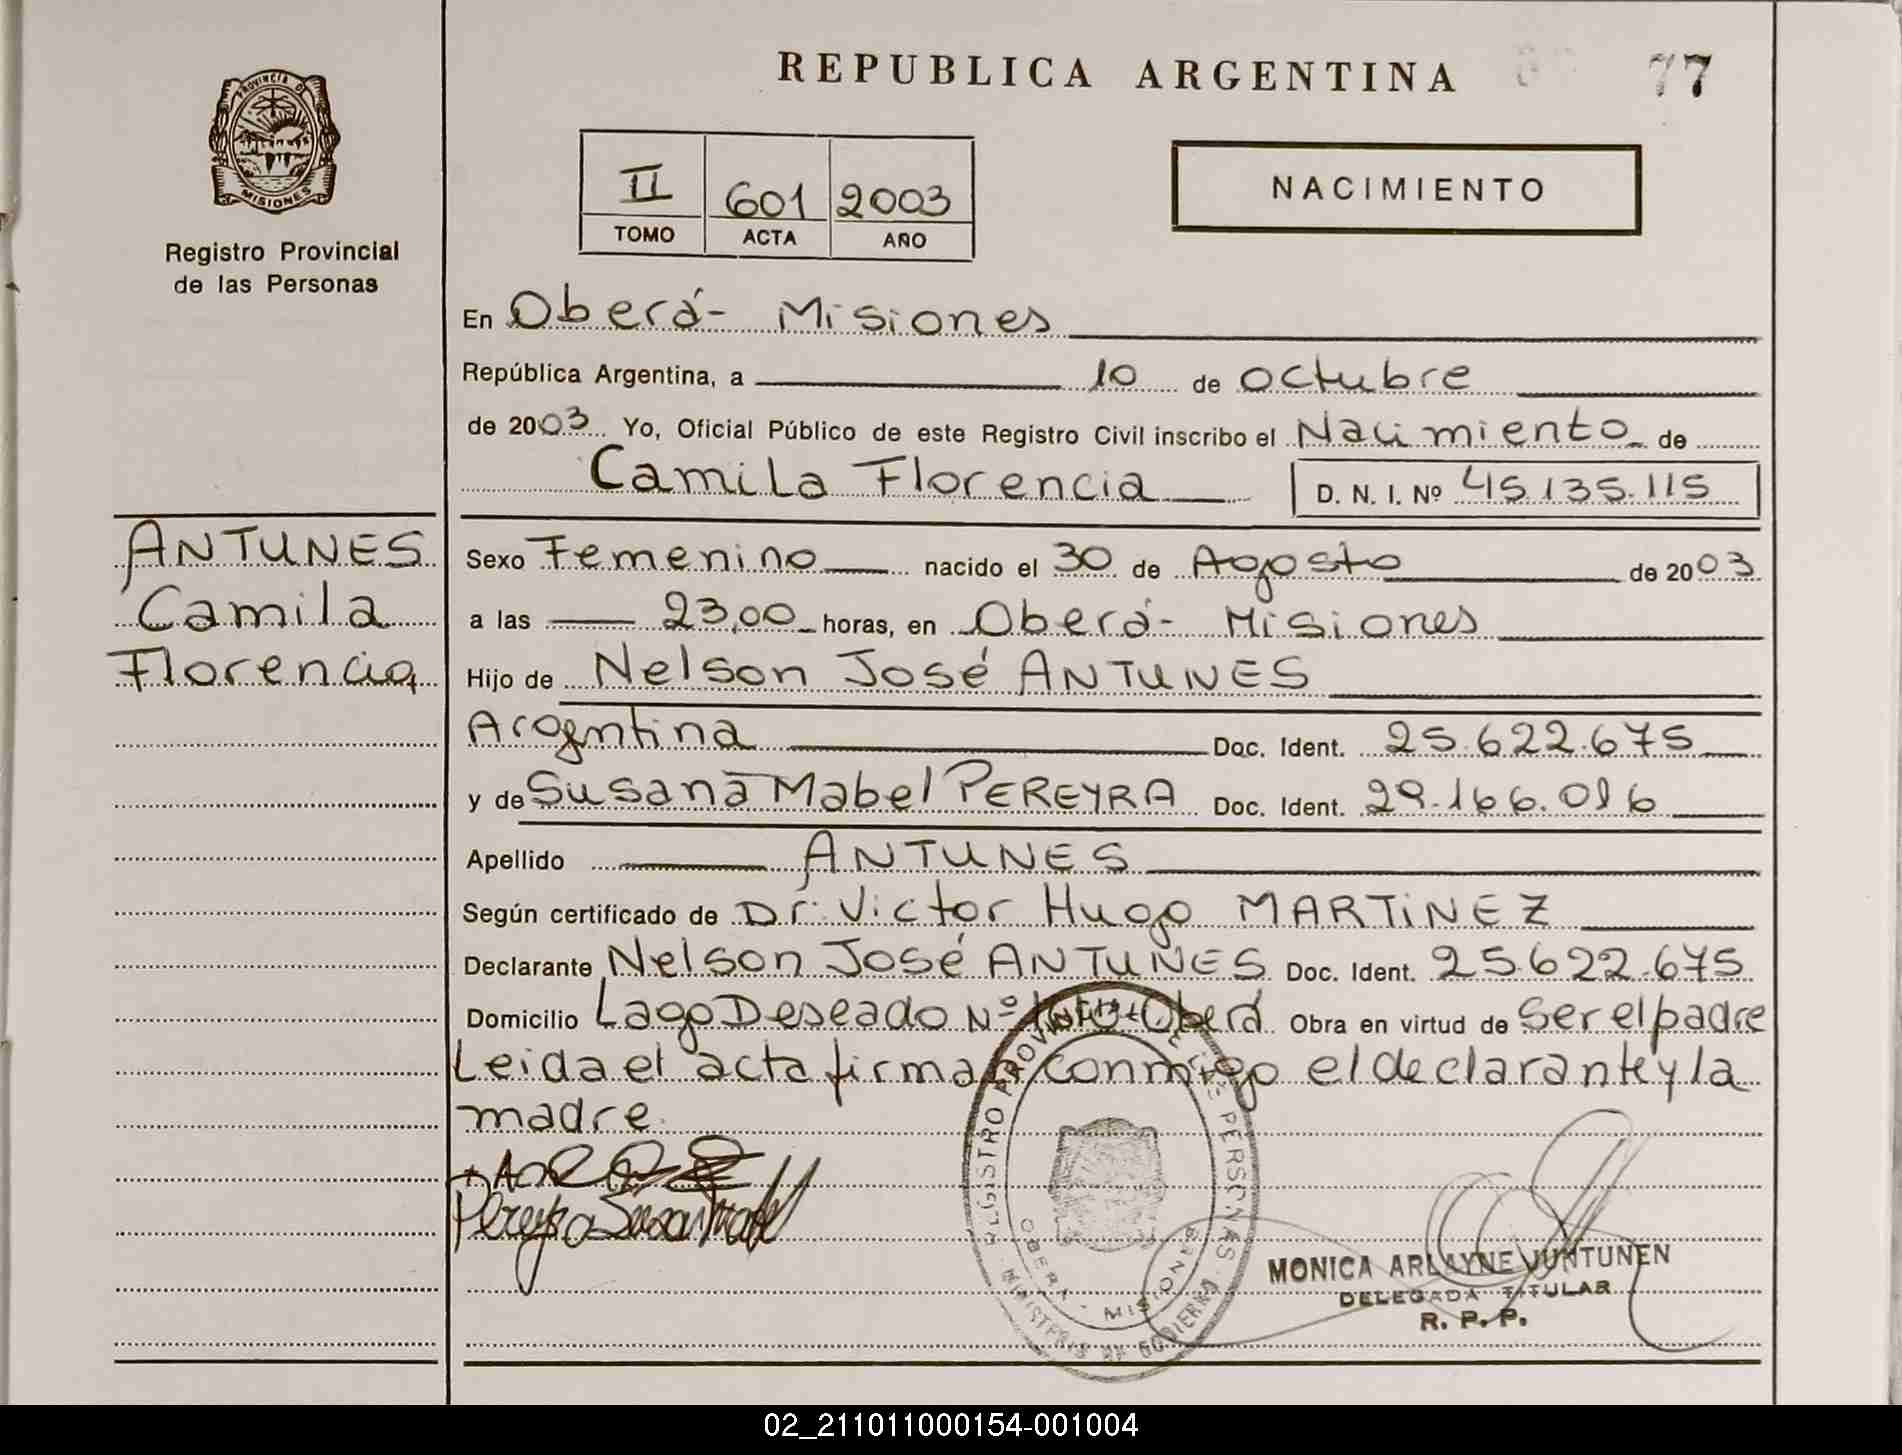 REPUBLICA ARGENTINA
77
PROVINCIA D
MISIONES
Registro Provincial
de las Personas
II 601 2003
TOMO ACTA AÑO
NACIMIENTO
En Oberá- Misiones
República Argentina, a 10 de octubre
de 2003 Yo, Oficial Público de este Registro Civil inscribo el Nacimiento de
Camila Florencia D. N. I. Nº 45.135.115
ANTUNES
Camila
Florencia
Sexo Femenino nacido el 30 de Agosto de 2003
a las 23,00 horas, en Oberá- Misiones
Hijo de Nelson José ANTUNES
Argentina Doc. Ident. 25.622.675
y de Susana Mabel PEREYRA Doc. Ident. 29.166.016
Apellido ANTUNES
Según certificado de Dr. Victor Hugo MARTiNEZ
Declarante Nelson José ANTUNES Doc. Ident. 25.622.675
Domicilio Lago Deseado Nº Oberá Obra en virtud de Ser el padre
Leida el acta firman conmigo el declarante y la
madre.
Pereyra Susana Mabel
REGISTRO PROVINCIAL DE LAS PERSONAS
OBERA - MISIONES
MINISTERIO DE GOBIERNO
MONICA ARLAYNE JUNTUNEN
DELEGADA TITULAR
R. P. P.
02_211011000154-001004